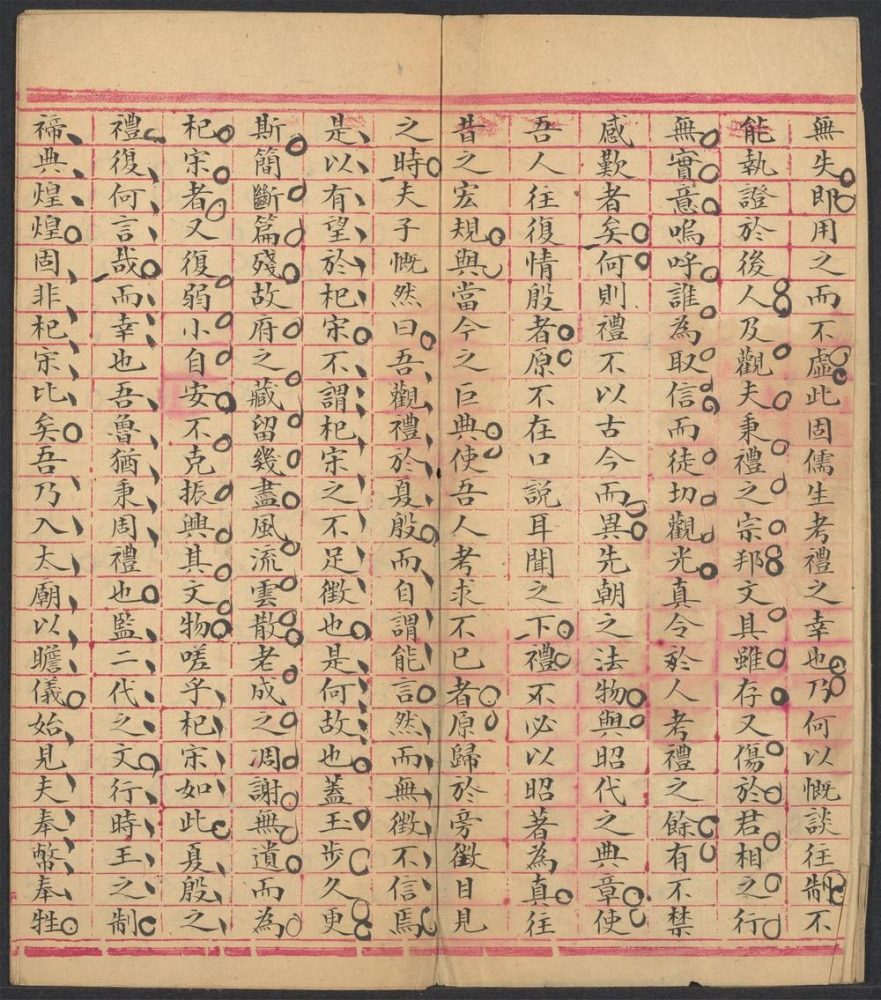 無失即用之而不虛此固儒生考禮之幸也乃何以慨談往制不
能執證於後人及觀夫秉禮之宗邦文具雖存又傷於君相之行
無實意嗚呼誰為取信而徒切觀光真令於人考禮之餘有不禁
感歎者矣何則禮不以古今而異先朝之法物與昭代之典章使
吾人往復情殷者原不在口說耳聞之下禮不必以昭著為真往
昔之宏規與當今之巨典使吾人考求不已者原歸於旁徵目見
之時夫子慨然曰吾觀禮於夏殷而自謂能言然而無徵不信焉
是以有望於杞宋不謂杞宋之不足徵也是何故也蓋玉步久更
斯簡斷篇殘故府之藏留幾盡風流雲散老成之凋謝無遺而為
杞宋者又復弱小自安不克振興其文物嗟乎杞宋如此夏殷之
禮復何言哉而幸也吾魯猶秉周禮也監二代之文行時王之制
禘典煌煌固非杞宋比矣吾乃入太廟以瞻儀始見夫奉幣奉牲